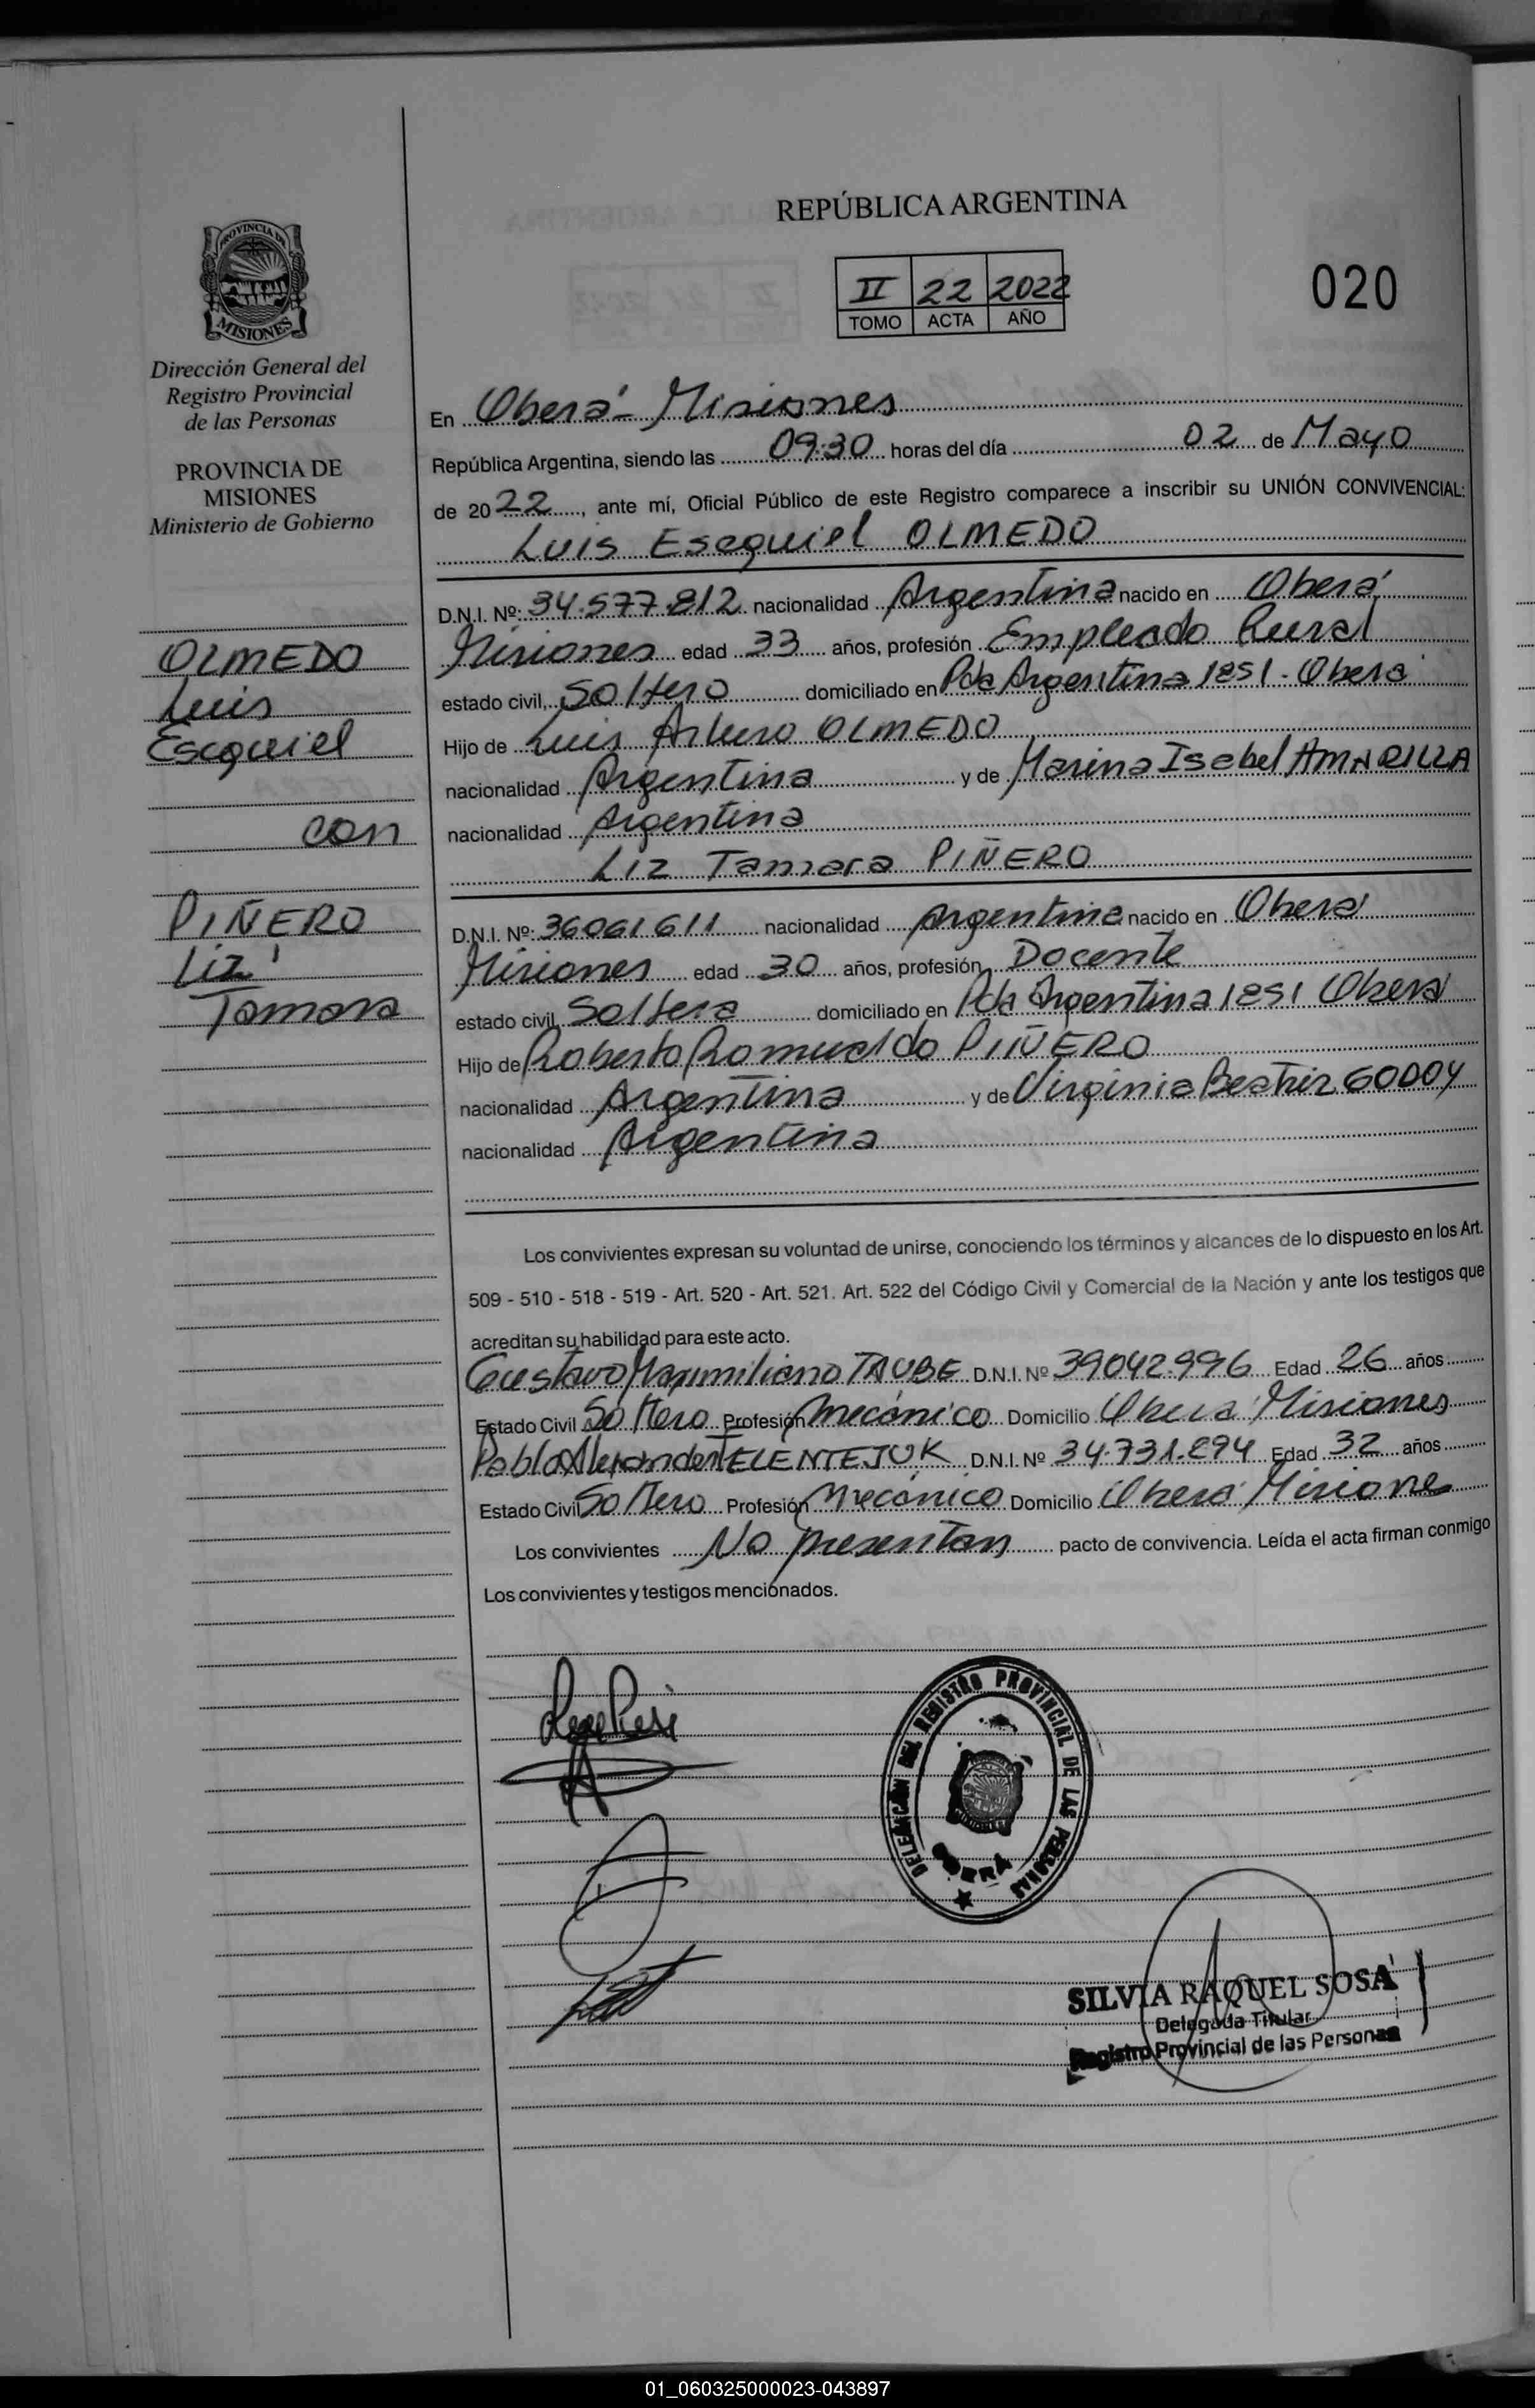 REPÚBLICA ARGENTINA
II 22 2022
TOMO ACTA AÑO
020
PROVINCIA DE
MISIONES
Dirección General del
Registro Provincial
de las Personas
PROVINCIA DE
MISIONES
Ministerio de Gobierno
OLMEDO
Luis
Esequiel
con
PIÑERO
Liz
Tamara
En Oberá - Misiones
República Argentina, siendo las 09:30 horas del día 02 de Mayo
de 2022, ante mí, Oficial Público de este Registro comparece a inscribir su UNIÓN CONVIVENCIAL:
Luis Esequiel OLMEDO
D.N.I. Nº: 34.577.812 nacionalidad Argentina nacido en Oberá
Misiones edad 33 años, profesión Empleado Rural
estado civil, Soltero domiciliado en Pda Argentina 1851 - Oberá
Hijo de Luis Arturo OLMEDO
nacionalidad Argentina y de Marina Isabel AMARILLA
nacionalidad Argentina
Liz Tamara PIÑERO
D.N.I. Nº: 36061611 nacionalidad Argentina nacido en Oberá
Misiones edad 30 años, profesión, Docente
estado civil, Soltera domiciliado en Pda Argentina 1851 Oberá
Hijo de Roberto Romualdo PIÑERO
nacionalidad Argentina y de Virginia Beatriz GODOY
nacionalidad Argentina
Los convivientes expresan su voluntad de unirse, conociendo los términos y alcances de lo dispuesto en los Art.
509 - 510 - 518 - 519 - Art. 520 - Art. 521. Art. 522 del Código Civil y Comercial de la Nación y ante los testigos que
acreditan su habilidad para este acto.
Gustavo Maximiliano TAUBE D.N.I. Nº 39042.996 Edad 26 años
Estado Civil Soltero Profesión Mecánico Domicilio Oberá Misiones
Pablo Alexander TELENTEJUK D.N.I. Nº 34.731.894 Edad 32 años
Estado Civil Soltero Profesión Mecánico Domicilio Oberá Misiones
Los convivientes No presentan pacto de convivencia. Leída el acta firman conmigo
Los convivientes y testigos mencionados.
DELEGACIÓN DEL REGISTRO PROVINCIAL DE LAS PERSONAS
OBERÁ
SILVIA RAQUEL SOSA
Delegada Titular
Registro Provincial de las Personas
01_060325000023-043897